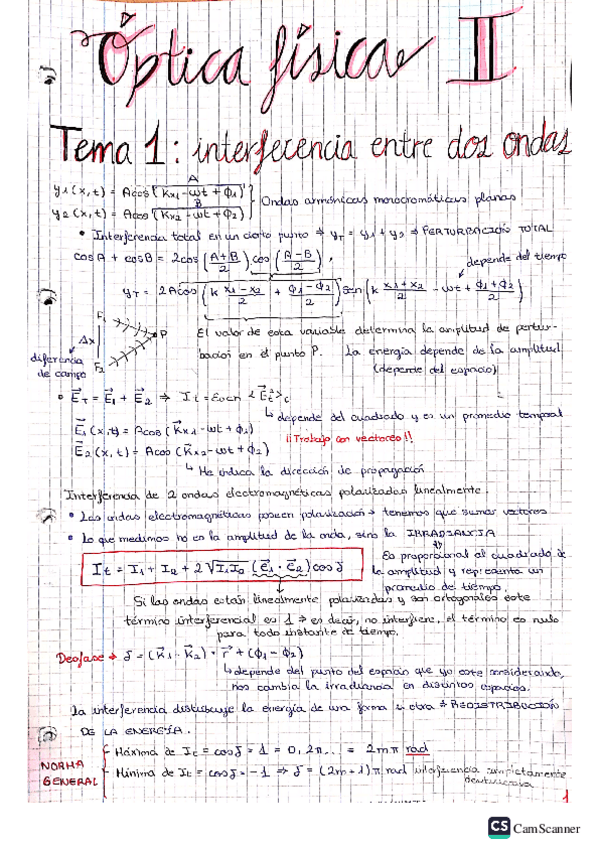 Óptica física II
Tema 1: interferencia entre dos ondas
y1(x,t) = A cos (kx1 - ωt + ϕ1) A
y2(x,t) = A cos (kx2 - ωt + ϕ2) B
Ondas armónicas monocromáticas planas
• Interferencia total en un cierto punto ⇒ yT = y1 + y2 ⇒ PERTURBACIÓN TOTAL
cos A + cos B = 2cos (A+B/2) cos (A-B/2),
depende del tiempo
yT = 2A cos (k x1-x2/2 + ϕ1-ϕ2/2) sen (k x1+x2/2 - ωt + ϕ1+ϕ2/2)
F1
Δx
P
F2
diferencia de campo
El valor de esta variable determina la amplitud de pertur-
bación en el punto P. La energía depende de la amplitud
(depende del espacio)
• E⃗T = E⃗1 + E⃗2 ⇒ It = εocn <E⃗t²>
↳ depende del cuadrado y es un promedio temporal
E⃗1(x,t) = A cos (K⃗x1 - ωt + ϕ1)
¡¡Trabajo con vectores!!
E⃗2(x,t) = A cos (K⃗x2 - ωt + ϕ2)
↳ Me indica la dirección de propagación
Interferencia de 2 ondas electromagnéticas polarizadas linealmente.
• Las ondas electromagnéticas poseen polarización → tenemos que sumar vectores
• Lo que medimos no es la amplitud de la onda, sino la IRRADIANCIA
Es proporcional al cuadrado de
la amplitud y representa un
promedio de tiempo.
It = I1 + I2 + 2√I1I2 (e⃗1 · e⃗2) cos δ
Si las ondas están linealmente polarizadas y son ortogonales este
término interferencial es 1 ⇒ es decir, no interfiere, el término es nulo
para todo instante de tiempo.
Desfase → δ = (K⃗1 · K⃗2) · r⃗ + (ϕ1 - ϕ2)
↳ depende del punto del espacio que yo esté considerando,
nos cambia la irradiancia en distintos espacios.
La interferencia distribuye la energía de una forma u otra ⇒ REDISTRIBUCIÓN
DE LA ENERGÍA.
NORMA GENERAL
- Máxima de It = cos δ = 1 = 0, 2π... = 2mπ rad
- Mínima de It = cos δ = -1 ⇒ δ = (2m+1)π rad interferencia completamente
destructiva
1
CS CamScanner